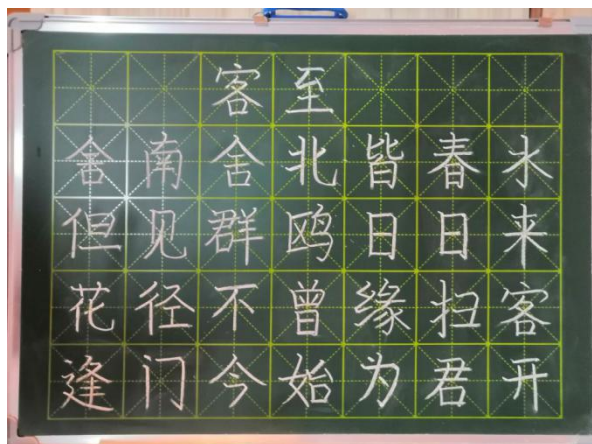 客至
舍南舍北皆春水
但见群鸥日日来
花径不曾缘扫客
逢门今始为君开